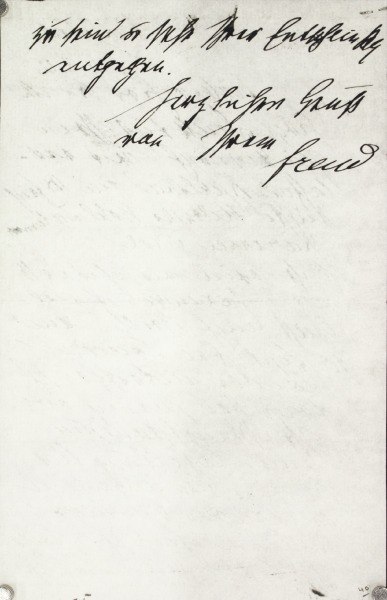 zu sein u sehe Ihrer Entschließg
entgegen.
Herzlichen Gruß
von Ihrem
Freud
40